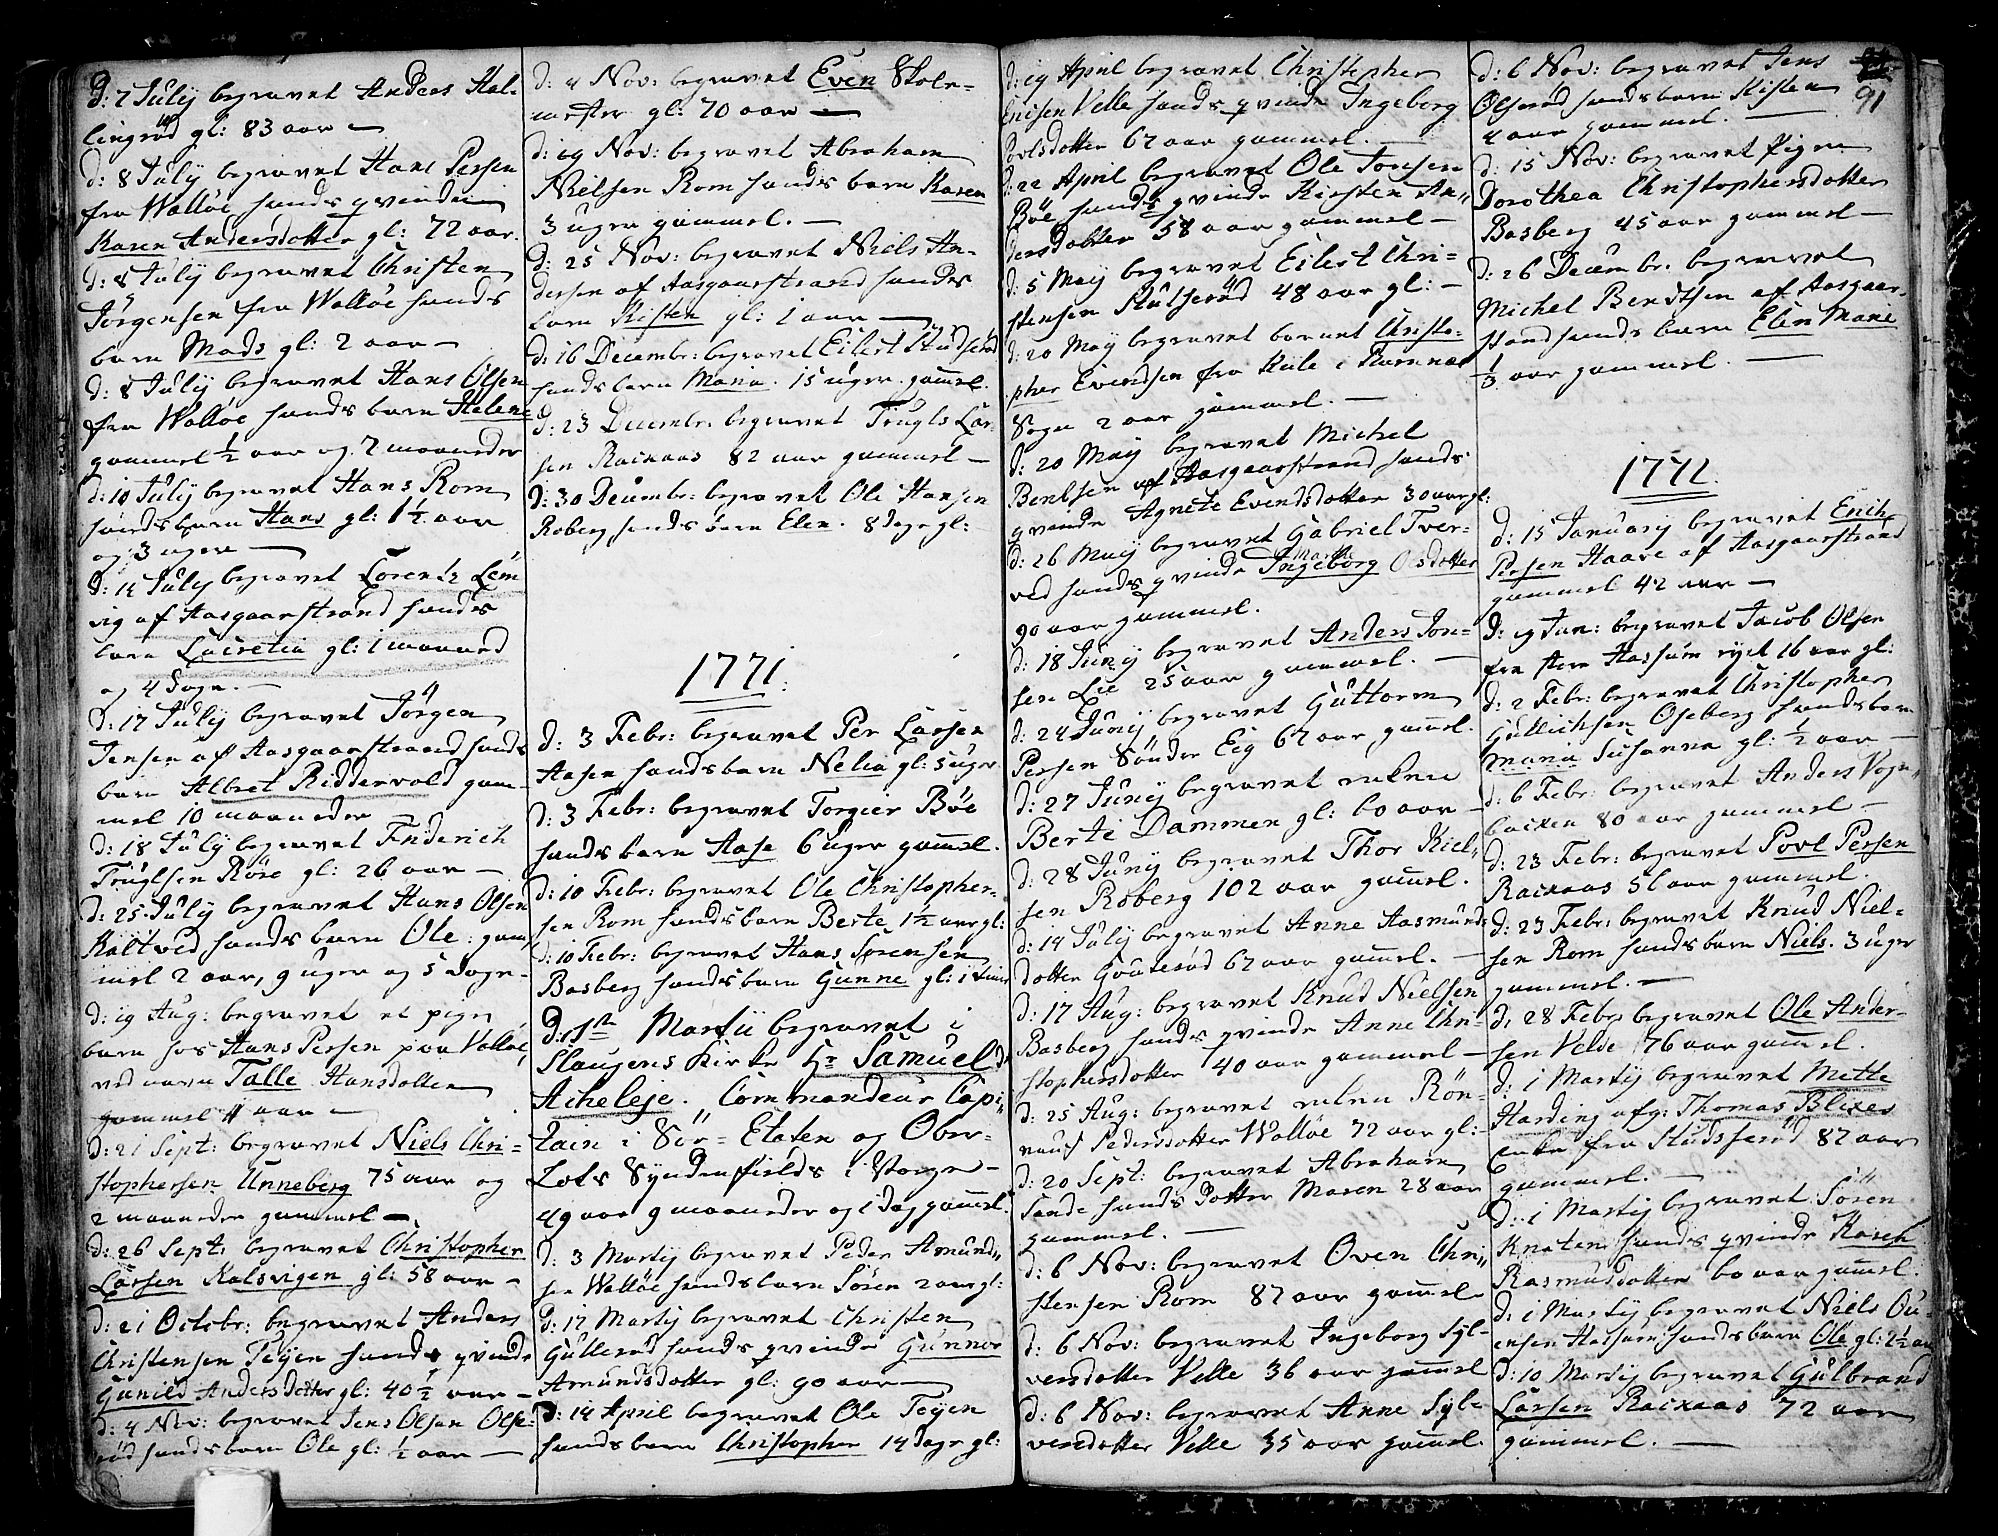 D: 7 July begravet Anders Hal-
lingrød gl: 83 aar —
d: 8 July begravet Hans Persen
fra Walløe hands qvinde
Karen Andersdotter gl: 72 aar.
d: 8 July begravet Christen
Jörgensen fra Walløe hands
barn Mads gl: 2 aar —
d: 8 July begravet Hans Olsen
fra Walløe hands barn Helene
gammel ½ aar og 7 maaneder
d: 10 July begravet Hans Rom
hands barn Hans gl: 1½ aar
og 3 uger —
d: 14 July begravet Lorentz Lem
vig af Aasgaarstrand hands
barn Lucretia gl: 1 maaned
og 4 Dage. —
d: 17 July begravet Jörgen
Jensen af Aasgaarstrand hands
barn Albret Riddervold gam-
mel 10 maaneder
d: 18 July begravet Friderich
Truglsen Röre gl: 26 aar —
d: 25 July begravet Hans Olsen
Kaltved hands barn Ole gam
mel 2 aar, 9 uger og 5 Dage
d: 19 Aug: begravet et pige
barn hos Hans Persen paa Valløe
ved navn Talle Hansdotter
gammel 4 aar —
d: 21 Sept: begravet Niels Chri-
stophersen Unneberg 75 aar og
2 maaneder gammel —
d: 26 Sept: begravet Christopher
Larsen Kalsvigen gl: 58 aar —
d: 21 Octobr: begravet Anders
Christensen Teyen hands qvinde
Gunild Andersdotter gl: 40½ aar —
d: 4 Nov: begravet Jens Olsen Olse-
rød hands barn Ole gl: ½ aar —
d: 4 Nov: begravet Even Skole-
mester gl: 70 aar —
d: 19 Nov: begravet Abraham
Nielsen Rom hands barn Karen
3 uger gammel. —
d: 25 Nov: begravet Niels An-
dersen af Aasgaarstrand hands
barn Kisten gl: 1 aar —
d: 16 Decembr: begravet Eilert Studserød
hands barn Maria. 15 uger gammel.
d: 23 Decembr: begravet Trugls Lar-
sen Backaas 82 aar gammel —
d: 30 Decembr: begravet Ole Hansen
Roberg hands barn Elen. 8 dage gl:
1771.
d: 3 Febr: begravet Per Larsen
Aasen hands barn Nelia gl: 5 uger
d: 3 Febr: begravet Torgier Böe
hands barn Aase 6 uger gammel.
d: 10 Febr: begravet Ole Christopher-
sen Rom hands barn Berte 1½ aar gl:
d: 10 Febr: begravet Hans Sörensen
Basberg hands barn Gunne gl: 1
D: 1ste Martii begravet i
Slaugens Kirke Hr Samuel
Acheleje. Commandeur Capi-
tain i Söe-Etaten og Ober-
Lots Syndenfields i Norge
49 aar 9 maaneder og 1 Dag gammel.
d: 3 Martij begravet Peder Amund-
sen Walløe hands barn Sören 2 aar gl:
d: 12 Martij begravet Christen
Gullerød hands qvinde Gunnor
Amundsdotter gl: 90 aar —
d: 14 April begravet Ole Teyen
hands barn Christopher 14 dage gl:
d: 19 April begravet Christopher
Erichsen Velle hands qvinde Ingeborg
Povlsdotter 67 aar gammel. —
d: 22 April begravet Ole Jonsen
Böe hands qvinde Kirsten An-
dersdotter 58 aar gammel —
d: 5 Maij begravet Eilert Chri-
stensen Stutserød 48 aar gl: —
d: 20 Maij begravet barnet Christo-
pher Evendsen fra Kule i Ramnes
Sogn 2 aar gammel. —
d: 20 Maij begravet Michel
Bentsen af Aasgaarstrand hands
qvinde Agnete Evendsdotter 30 aar gl:
d: 26 Maij begravet Gabriel Tver-
ved hands qvinde Ingeborg Marthe Olsdotter
90 aar gammel.
d: 18 Junij begravet Anders Jon-
sen Lie 25 aar gammel. —
d: 24 Junij begravet Guttorm
Persen Sönder Eig 67 aar gammel.
d: 27 Junij begravet enken
Berte Dammen gl: 60 aar —
d: 28 Junij begravet Thor Kiel-
sen Roberg 102 aar gammel.
d: 14 July begravet Anne Aasmunds
dotter Gouterød 67 aar gammel. —
d: 17 Aug: begravet Knud Nielsen
Basberg hands qvinde Anne Chri-
stophersdotter 40 aar gammel —
d: 25 Aug: begravet enken Rön-
naug Pedersdotter Walløe 72 aar gl:
d: 20 Sept: begravet Abraham
Sande hands Dotter Maren 28 aar
gammel. —
d: 6 Nov: begravet Oven Chri-
stensen Rom 87 aar gammel
d: 6 Nov: begravet Ingeborg Syl-
versdotter Velle 36 aar gammel
d: 6 Nov: begravet Anne Syl-
versdotter Velle 35 aar gammel.
91
d: 6 Nov: begravet Jens
Olserød hands barn Kisten
4 aar gammel. —
d: 15 Nov: begravet pigen
Dorothea Christophersdotter
Basberg 45 aar gammel —
d: 26 Decembr: begravet
Michel Bendtsen af Aasgaar-
strand hands barn Elen Marie
⅓ aar gammel. —
1772.
d: 15 Januarij begravet Erich
Persen Haare af Aasgaarstrand
gammel 42 aar —
d: 19 Jan: begravet Jacob Olsen
fra store Aassum ryet 16 aar gl:
d: 2 Febr: begravet Christopher
Gullichsen Oseberg hands barn
Maria Susanna gl: ½ aar —
d: 6 Febr: begravet Anders Vogn-
backen 80 aar gammel —
d: 23 Febr: begravet Povl Persen
Backaas 56 aar gammel.
d: 23 Febr: begravet Knud Niel-
sen Rom hands barn Niels. 3 uger
gammel. —
d: 28 Febr begravet Ole Ander-
sen Velde 76 aar gammel.
d: 1 Martij begravet Mette
Harding afg: Thomas Blixes
enke fra Studsserød 87 aar
gammel. —
d: 1 Martij begravet Sören
Knaten hands qvinde Karen
Rasmusdotter 60 aar gammel.
d: 1 Martij begravet Niels Ou-
ensen Aassum hands barn Ole gl: 1½ aar
d: 10 Martij begravet Gulbrand
Larsen Backaas 72 aar
gammel. —